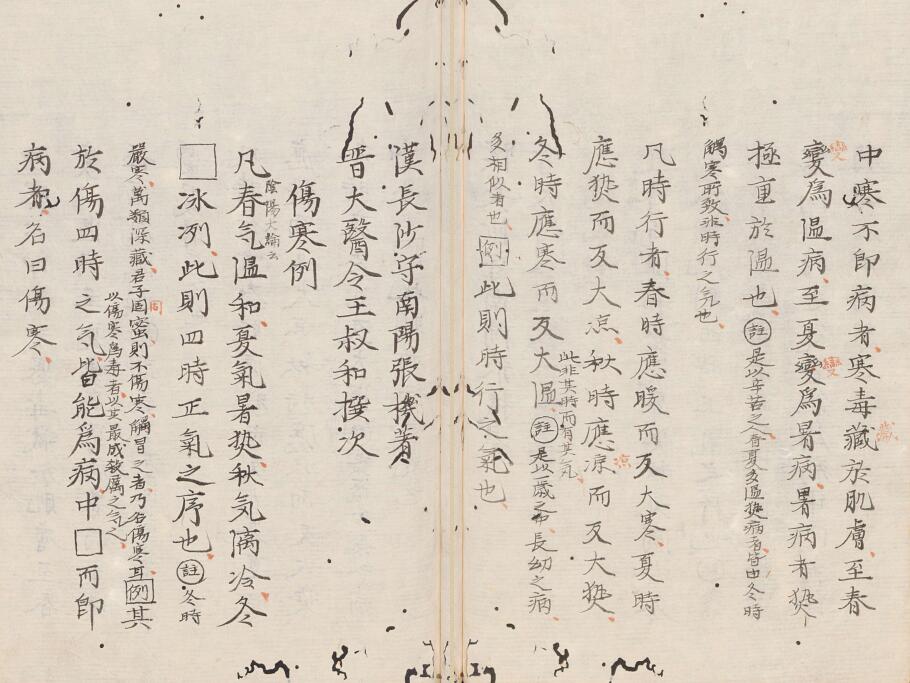 中寒不即病者寒毒藏於肌膚至春
藏
變為温病至夏變爲暑病暑病者热
變
變
極重於温也註是以辛苦之人春夏多温热病者皆由冬時
觸寒所致非時行之气也
凡時行者春時應暖而反大寒夏時
應热而反大凉秋時應凉而反大热
涼
冬時應寒而反大温註是以一歳之中長幼之病
此非其時而有其气
多相似者也例此則時行之氣也
漢長沙守南陽張機著
晋大醫令王叔和撰次
傷寒例
陰陽大論云
凡春气温和夏氣暑热秋气清冷冬
□冰冽此則四時正氣之序也註冬時
嚴寒萬類深藏君子固蜜則不傷寒觸冒之者乃名傷寒耳例其
固
以傷寒為毒者以其最成殺厲之气也
於傷四時之气皆能爲病中□而即
病者名曰傷寒